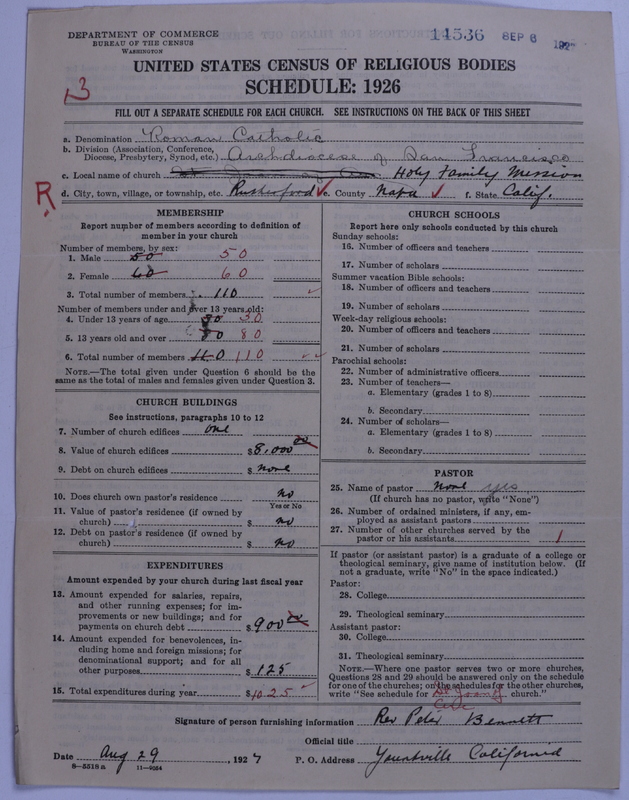 DEPARTMENT OF COMMERCE
BUREAU OF THE CENSUS
WASHINGTON
14536 SEP 6 192
UNITED STATES CENSUS OF RELIGIOUS BODIES
SCHEDULE: 1926
3
FILL OUT A SEPARATE SCHEDULE FOR EACH CHURCH. SEE INSTRUCTIONS ON THE BACK OF THIS SHEET
a. Denomination Roman Catholic
b. Division (Association, Conference, Diocese, Presbytery, Synod, etc.) Archdiocese of San Francisco
c. Local name of church Holy Family Mission
R
d. City, town, village, or township, etc. Rutherford e. County Napa f. State Calif.
MEMBERSHIP
Report number of members according to definition of
member in your church
Number of members, by sex:
1. Male 50 50
2. Female 60 60
3. Total number of members 110
Number of members under and over 13 years old:
4. Under 13 years of age 30 30
5. 13 years old and over 80 80
6. Total number of members 110 110
NOTE.—The total given under Question 6 should be
same as the total of males and females given under Question 3.
CHURCH BUILDINGS
See instructions, paragraphs 10 to 12
7. Number of church edifices one
8. Value of church edifices $8,000 00
9. Debt on church edifices $ none
10. Does church own pastor's residence no
Yes or No
11. Value of pastor's residence (if owned by
church) $ no
12. Debt on pastor's residence (if owned by
church) $ no
EXPENDITURES
Amount expended by your church during last fiscal year
13. Amount expended for salaries, repairs,
and other running expenses; for im-
provements or new buildings; and for
payments on church debt $900 00
14. Amount expended for benevolences, in-
cluding home and foreign missions; for
denominational support; and for all
other purposes $125
15. Total expenditures during year $1025
CHURCH SCHOOLS
Report here only schools conducted by this church
Sunday schools:
16. Number of officers and teachers
17. Number of scholars
Summer vacation Bible schools:
18. Number of officers and teachers
19. Number of scholars
Week-day religious schools:
20. Number of officers and teachers
21. Number of scholars
Parochial schools:
22. Number of administrative officers
23. Number of teachers—
a. Elementary (grades 1 to 8)
b. Secondary
24. Number of scholars—
a. Elementary (grades 1 to 8)
b. Secondary
PASTOR
25. Name of pastor None yes
(If church has no pastor, write "None")
26. Number of ordained ministers, if any, em-
ployed as assistant pastors
27. Number of other churches served by the
pastor or his assistants 1
If pastor (or assistant pastor) is a graduate of a college or
theological seminary, give name of institution below. (If
not a graduate, write "No" in the space indicated.)
Pastor:
28. College
29. Theological seminary
Assistant pastor:
30. College
31. Theological seminary
NOTE.—Where one pastor serves two or more churches,
Questions 28 and 29 should be answered only on the schedule
for one of the churches; on the schedules for the other churches,
write "See schedule for St Joan of church."
Signature of person furnishing information Rev Peter Bennett
Official title
Date Aug 29, 1927 P. O. Address Yountville California
8—5518 a 11—9054